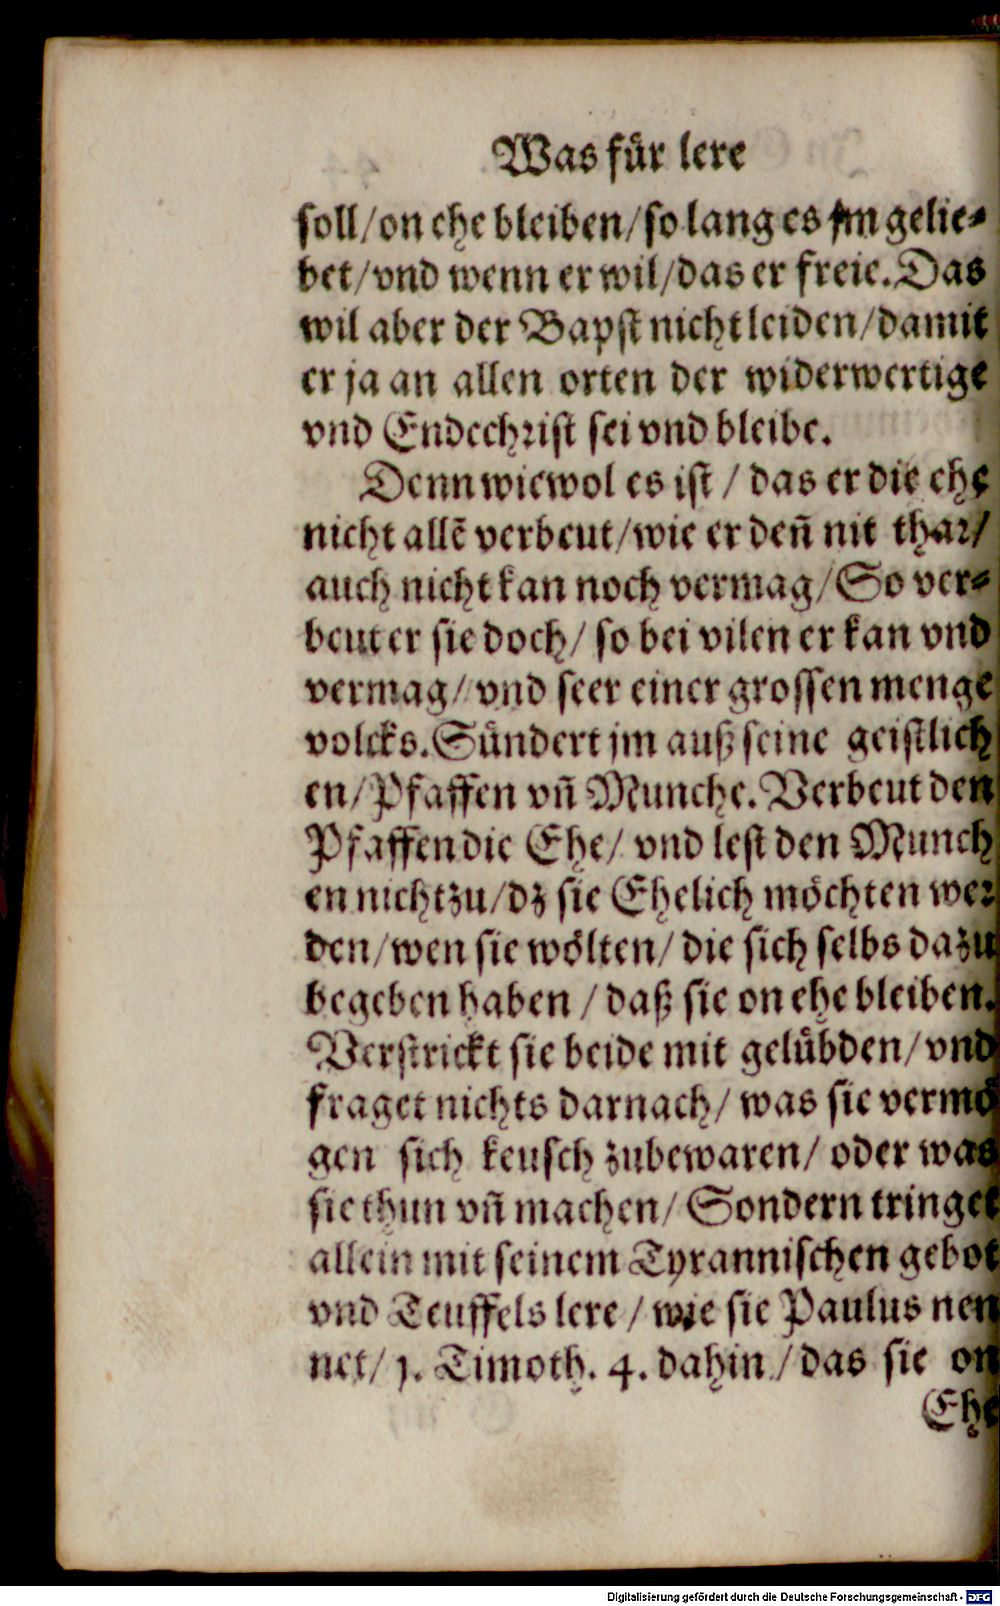 Was für lere
soll/on ehe bleiben/so lang es jm gelie⸗
bet/vnd wenn er wil/das er freie. Das
wil aber der Bapst nicht leiden/damit
er ja an allen orten der widerwertige
vnd Endechrist sei vnd bleibe.
Denn wiewol es ist / das er die ehe
nicht allē verbeut/wie er deñ nit thar/
auch nicht kan noch vermag/So ver⸗
beut er sie doch/ so bei vilen er kan vnd
vermag/ vnd seer einer grossen menge
volcks. Sündert jm auß seine geistlich
en/Pfaffen vñ Munche. Verbeut den
Pfaffen die Ehe/ vnd lest den Munch
en nicht zu/dz sie Ehelich möchten wer
den/wen sie wölten/ die sich selbs dazu
begeben haben / daß sie on ehe bleiben.
Verstrickt sie beide mit gelübden/vnd
fraget nichts darnach/ was sie vermö
gen sich keusch zubewaren/ oder was
sie thun vñ machen/ Sondern tringet
allein mit seinem Tyrannischen gebot
vnd Teuffels lere / wie sie Paulus nen
net/ 1. Timoth. 4. dahin / das sie on
Ehe
Digitalisierung gefördert durch die Deutsche Forschungsgemeinschaft - DFG